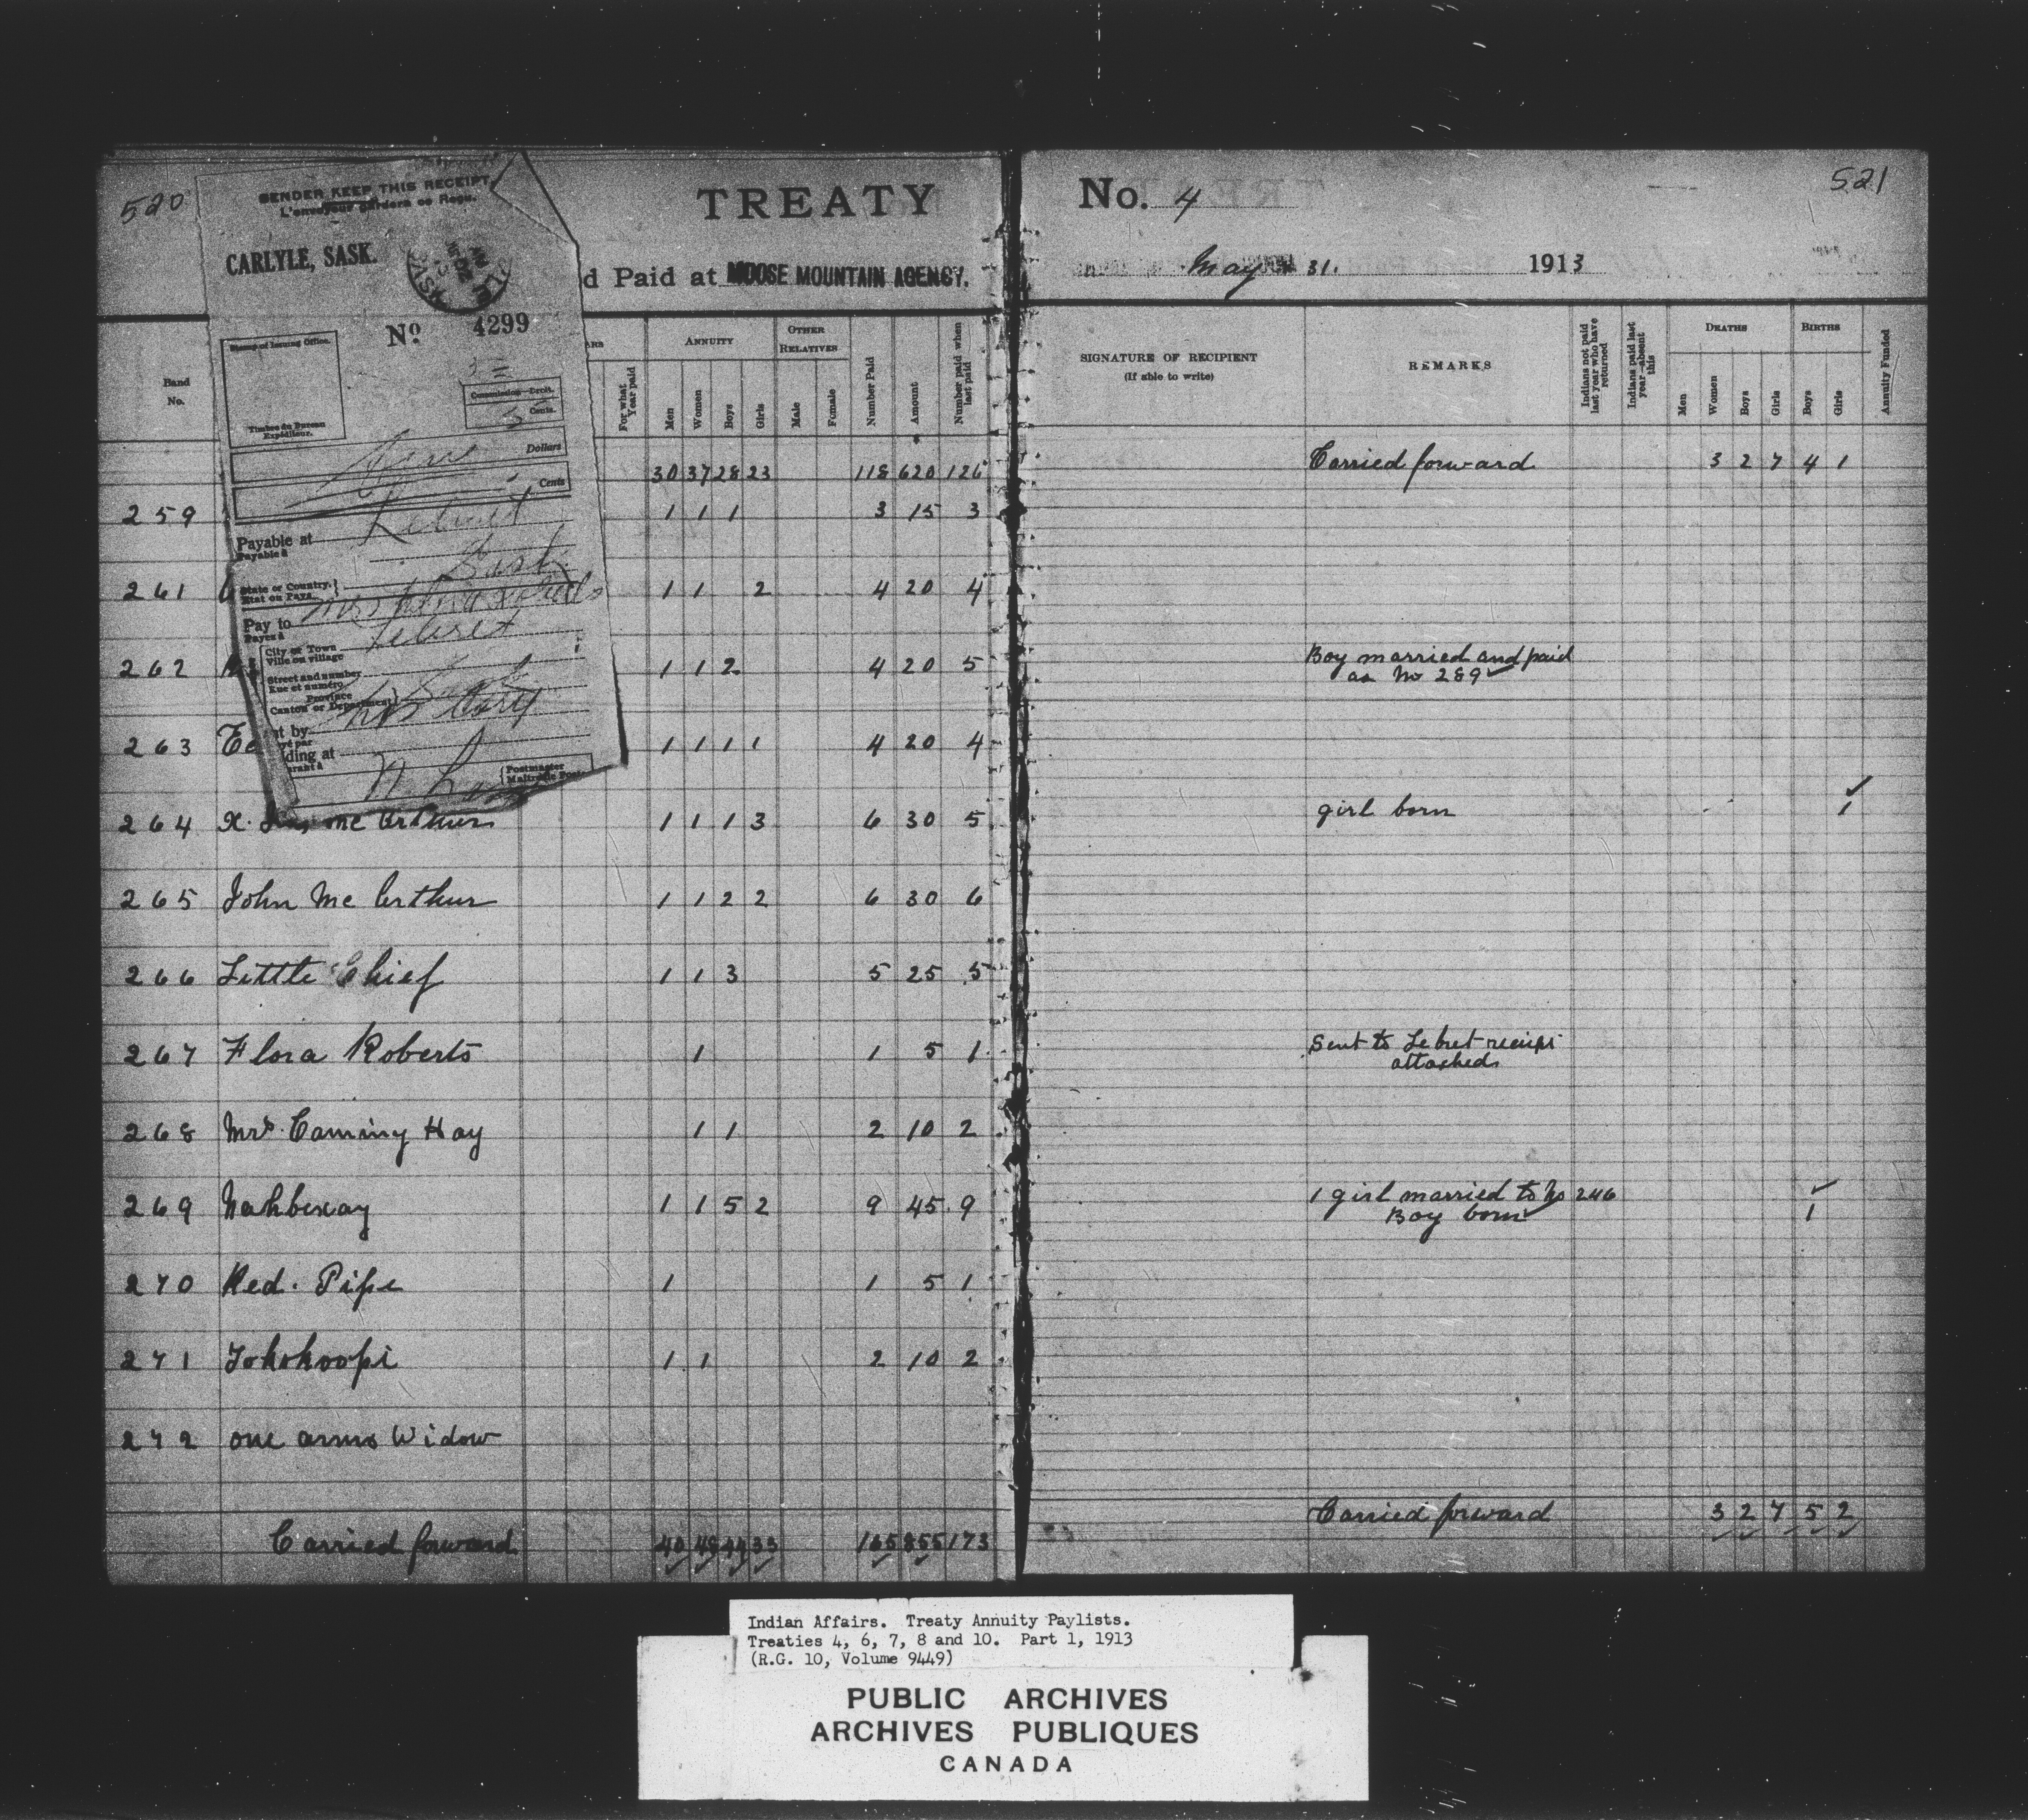 520
TREATY
d Paid at MOOSE MOUNTAIN AGENCY.
SENDER KEEP THIS RECEIPT
L'envoyeur gardera ce Reçu.
CARLYLE, SASK.
No. 4299
Stamp of Issuing Office.
Timbre du Bureau
Expéditeur.
Commission—Droit.
5 Cents.
Five Dollars
Cents
Payable at Lebret
Payable à
Sask
State or Country.
Etat ou Pays.
Pay to Mrs Flora Roberts
Payez à
City or Town Lebret
Ville ou village
Street and number
Rue et numéro
Province Sask
Canton or Department
nt by
yé par
ding at
Postmaster
Band No. For what Year paid ANNUITY Men Women Boys Girls OTHER RELATIVES Male Female Number Paid Amount Number paid when last paid
30 37 28 23 118 620 126
259 1 1 1 3 15 3
261 1 1 2 4 20 4
262 1 1 2 4 20 5
263 1 1 1 1 4 20 4
264 Mc Arthur 1 1 1 3 6 30 5
265 John Mc Arthur 1 1 2 2 6 30 6
266 Little Chief 1 1 3 5 25 5
267 Flora Roberts 1 1 5 1
268 Mrs. Camming Hay 1 1 2 10 2
269 Nahbexay 1 1 5 2 9 45 9
270 Red Pipe 1 1 5 1
271 Tokohoopi 1 1 2 10 2
272 one arms Widow
Carried forward 40 48 44 33 165 855 173
No. 4
521
May 31. 1913
SIGNATURE OF RECIPIENT
(If able to write)
REMARKS
Indians not paid last year who have returned
Indians paid last year—absent this
DEATHS Men Women Boys Girls
BIRTHS Boys Girls
Annuity Funded
Carried forward 3 2 7 4 1
Boy married and paid
as No 289
girl born 1
Sent to Lebret receipt
attached
1 girl married to No 246
Boy born 1
Carried forward 3 2 7 5 2
Indian Affairs. Treaty Annuity Paylists.
Treaties 4, 6, 7, 8 and 10. Part 1, 1913
(R.G. 10, Volume 9449)
PUBLIC ARCHIVES
ARCHIVES PUBLIQUES
CANADA